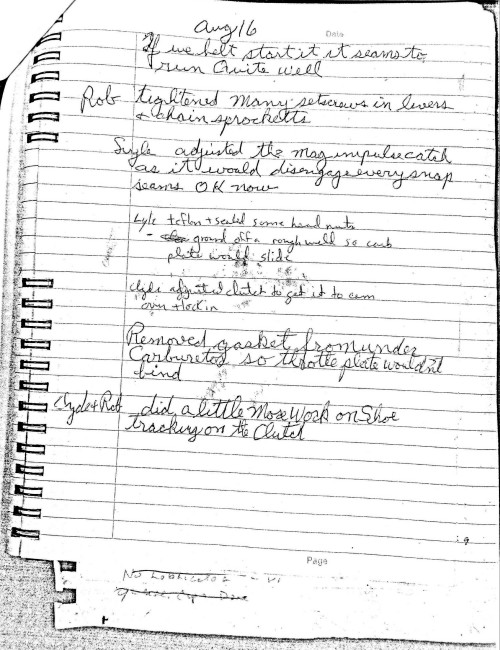 Aug 16
Date
If we belt start it it seams to
run Quite well
Rob tightened many setscrews in levers
& chain sprocketts
adjusted the mag impulse catch
as it would disengage every snap
seams OK now
Lyle teflon + sealed some head nuts
- ground off a rough well so carb
plate would slide
Clyde adjusted clutch to get it to cam
over + lock in
Removed gasket from under
Carburetor so throttle plate wouldn't
bind
Clyde + Rob did a little More Work on Shoe
tracking on the Clutch
Page
No Lubricator